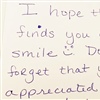 I hope th
finds you
smile☺ Do
forget that y
appreciated